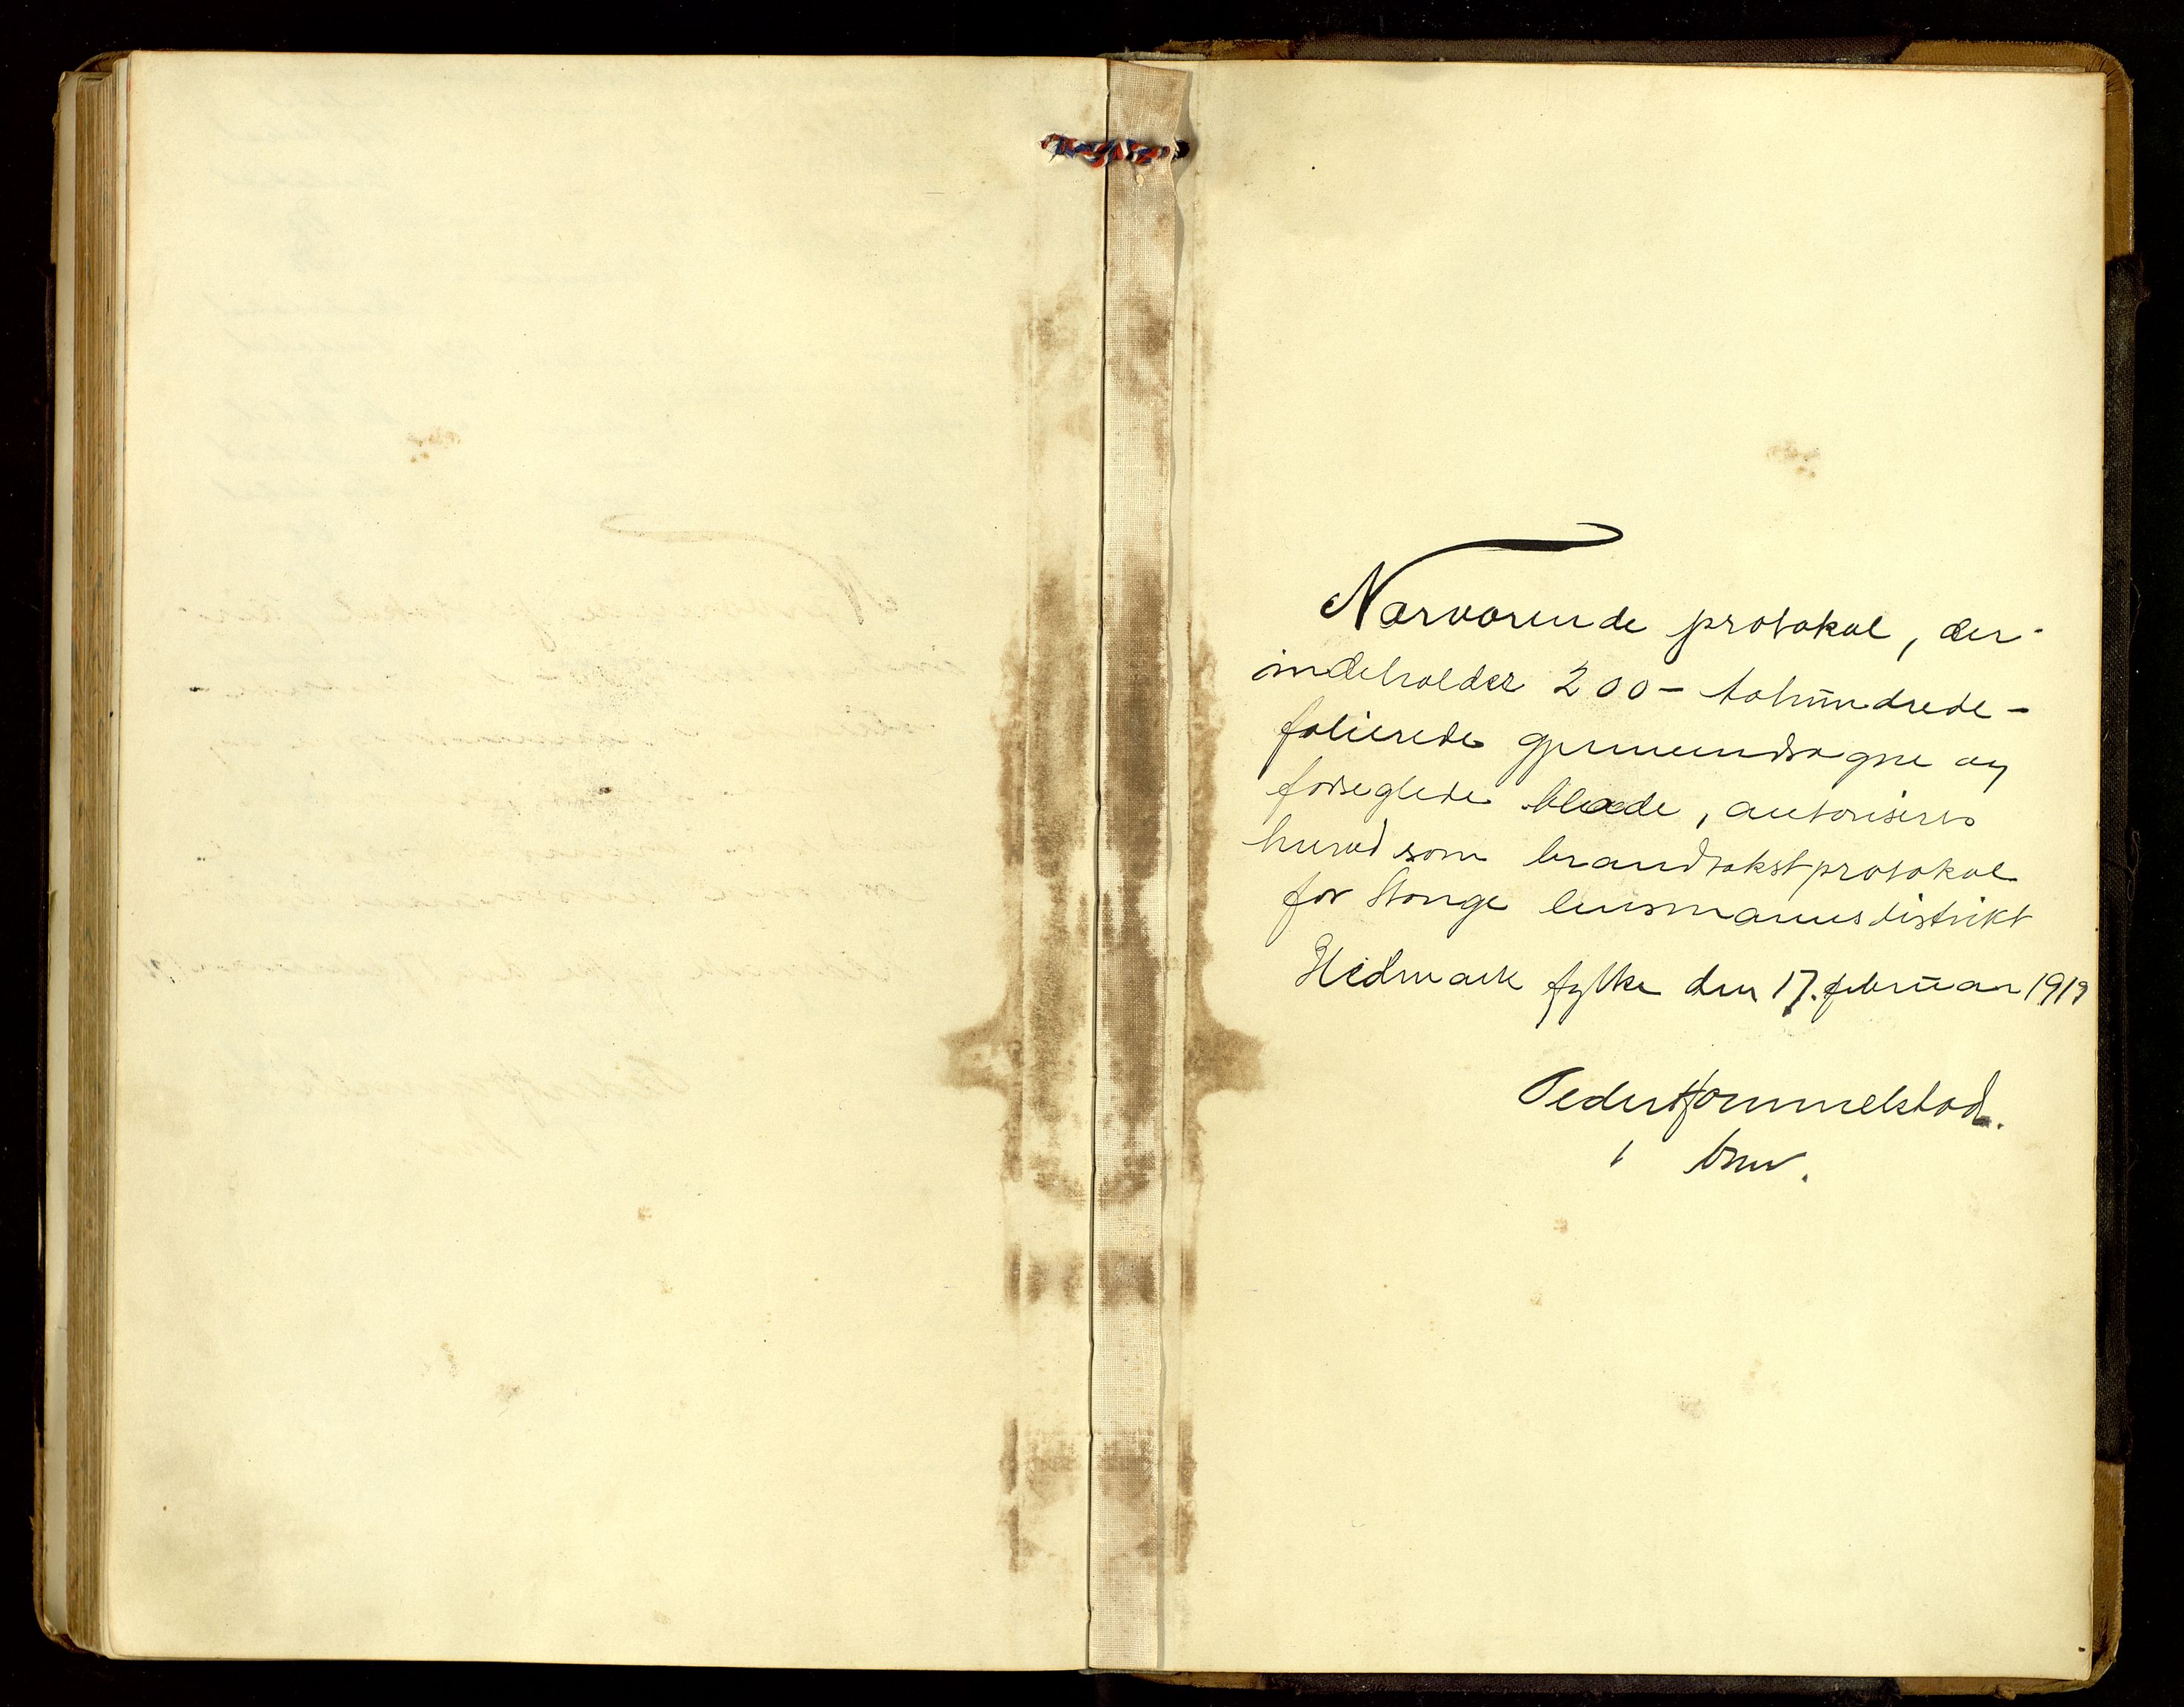 Nærværende protokol, der
indeholder 200 - tohundrede -
folierede gjennemdragne og
forseglede blade, autoriseres
herved som brandtakstprotokol
for Stange lensmannsdistrikt
Hedmark fylke den 17. februar 1919
Peder Hommelstad.